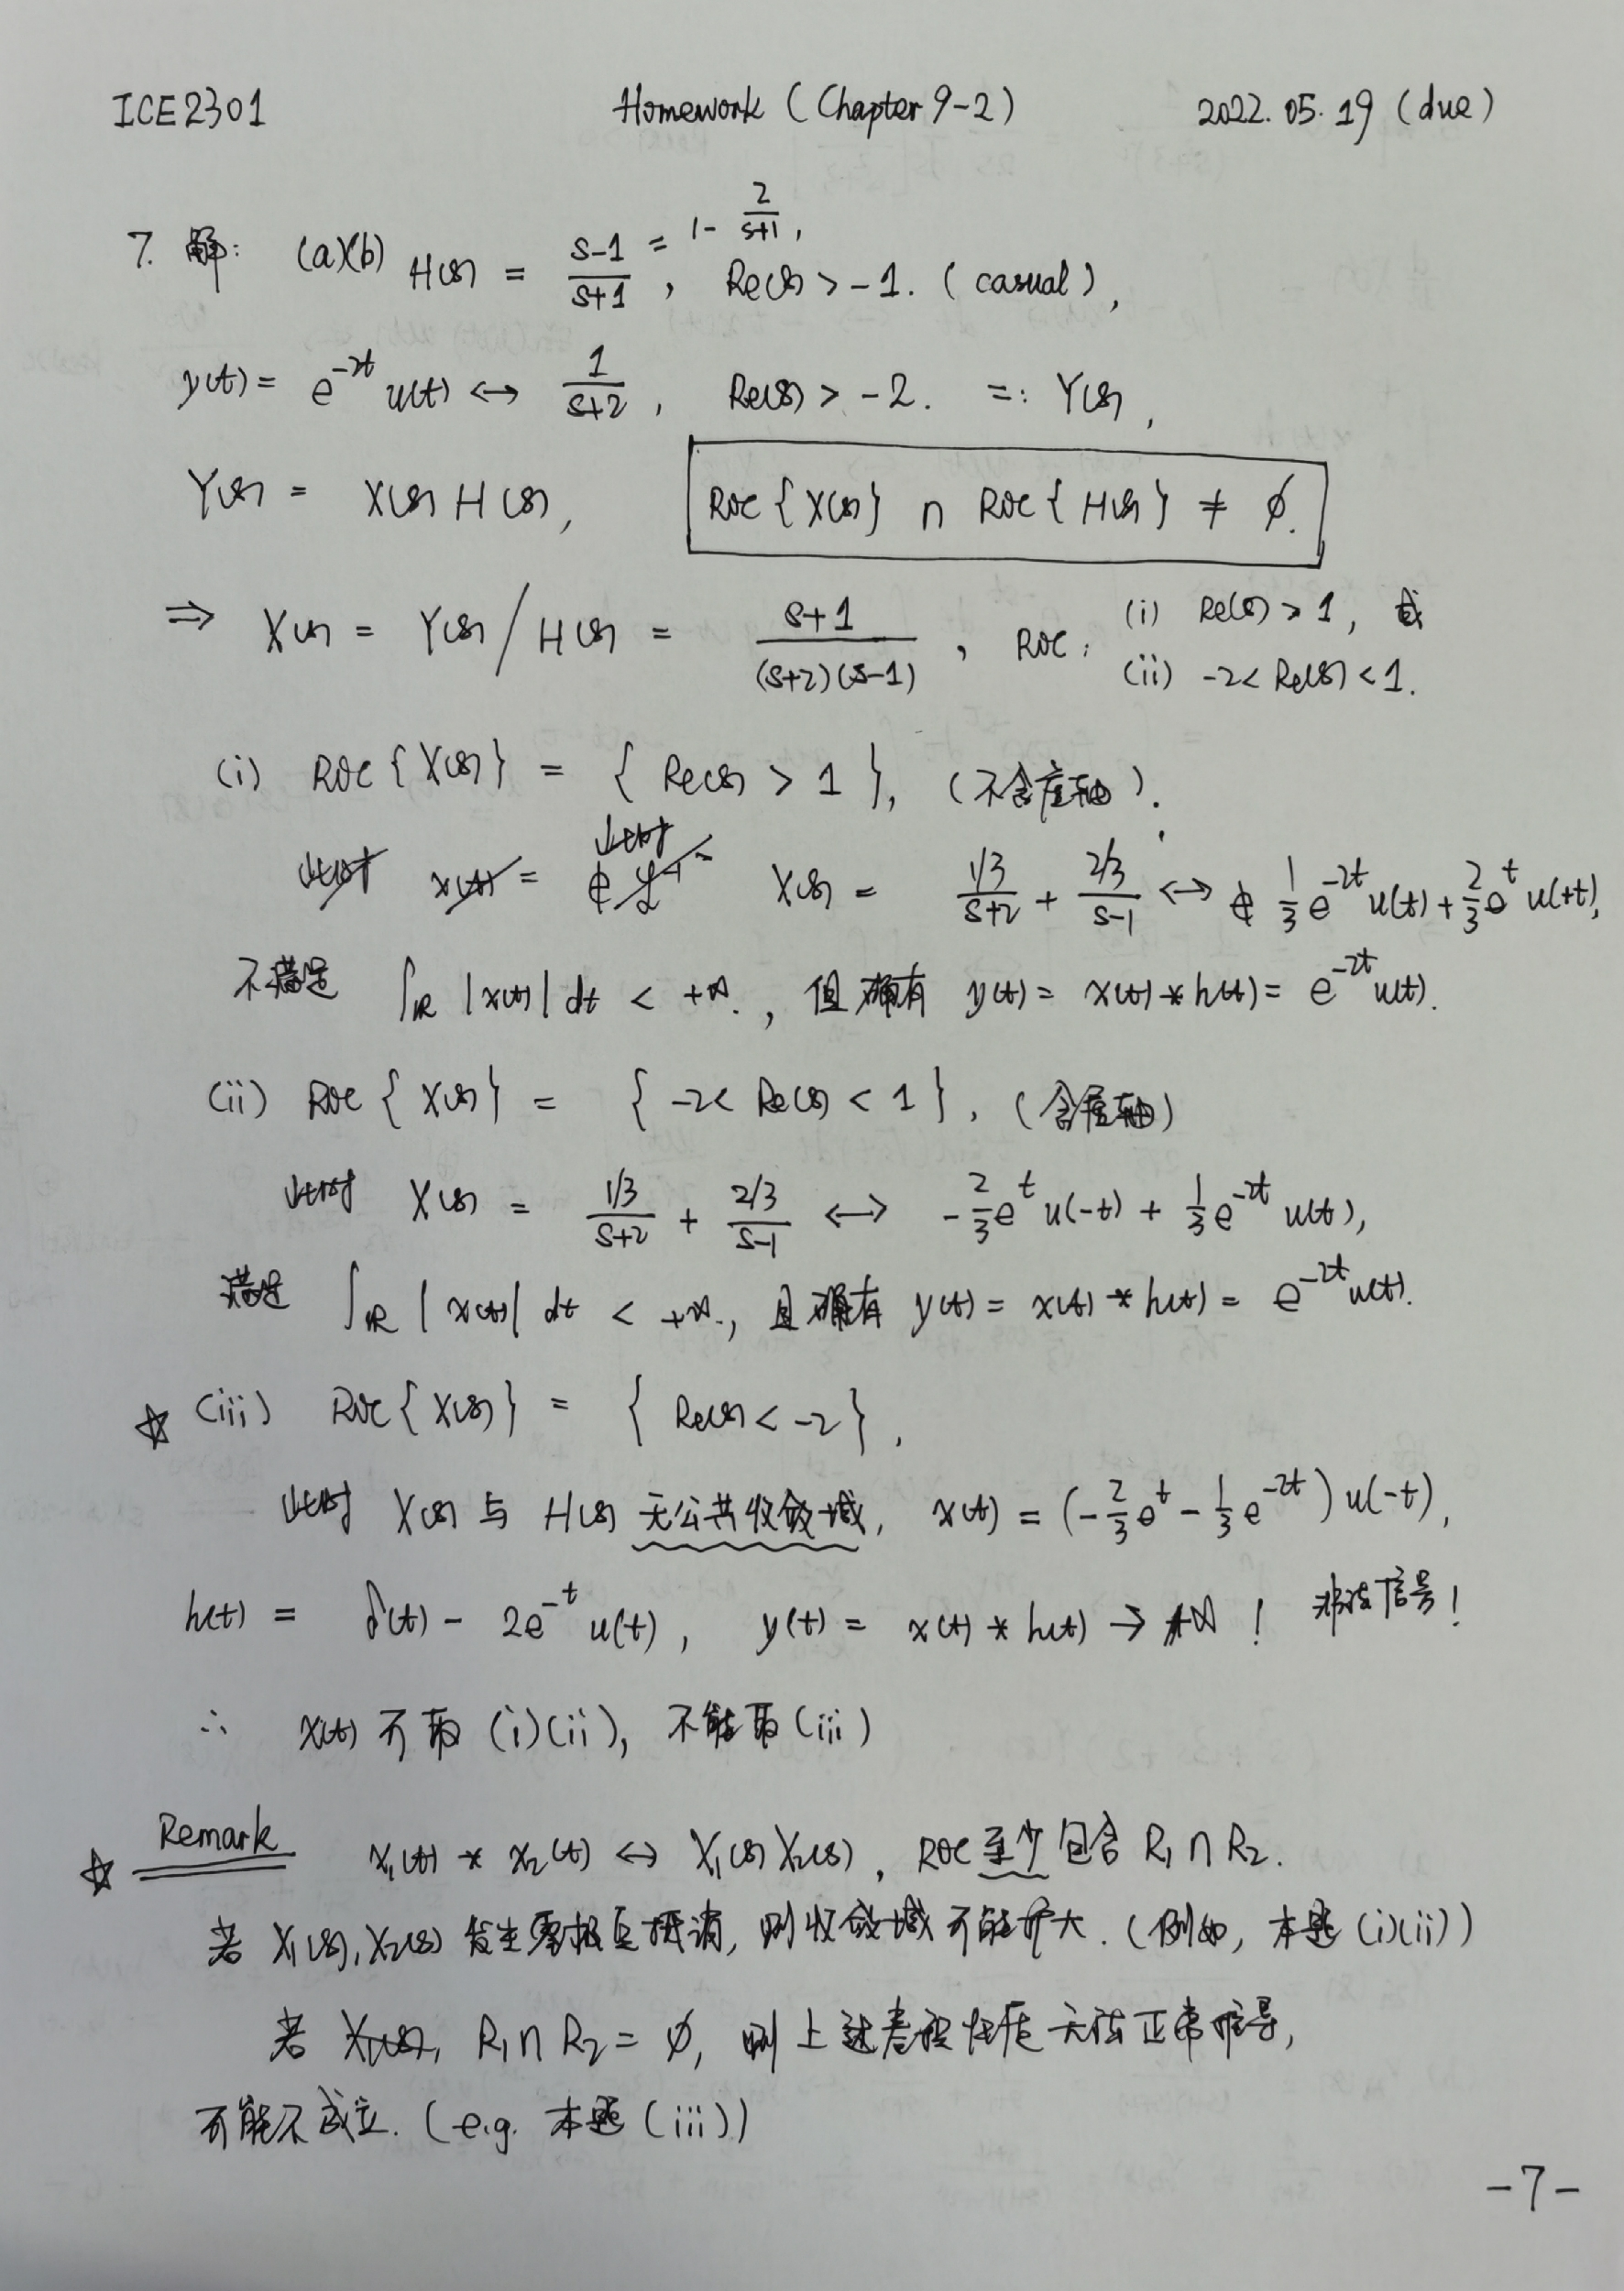 ICE2301 Homework (Chapter 9-2) 2022.05.19 (due)
7. 解: (a)(b) H(s) = \frac{s-1}{s+1} = 1 - \frac{2}{s+1}, Re(s) > -1. (casual),
y(t) = e^{-2t} u(t) ↔ \frac{1}{s+2}, Re(s) > -2. =: Y(s),
Y(s) = X(s) H(s), ROC{X(s)} ∩ ROC{H(s)} ≠ ∅.
⇒ X(s) = Y(s) / H(s) = \frac{s+1}{(s+2)(s-1)}, ROC: (i) Re(s) > 1, 或
(ii) -2 < Re(s) < 1.
(i) ROC{X(s)} = { Re(s) > 1 }, (不含虚轴).
此时 X(s) = \frac{1/3}{s+2} + \frac{2/3}{s-1} ↔ \frac{1}{3} e^{-2t} u(t) + \frac{2}{3} e^{t} u(+t),
不满足 ∫_ℝ |x(t)| dt < +∞., 但确有 y(t) = x(t) * h(t) = e^{-2t} u(t).
(ii) ROC{X(s)} = { -2 < Re(s) < 1 }, (含虚轴)
此时 X(s) = \frac{1/3}{s+2} + \frac{2/3}{s-1} ↔ -\frac{2}{3} e^{t} u(-t) + \frac{1}{3} e^{-2t} u(t),
满足 ∫_ℝ |x(t)| dt < +∞., 且确有 y(t) = x(t) * h(t) = e^{-2t} u(t).
☆ (iii) ROC{X(s)} = { Re(s) < -2 },
此时 X(s) 与 H(s) 无公共收敛域, x(t) = (-\frac{2}{3} e^{t} - \frac{1}{3} e^{-2t}) u(-t),
h(t) = δ(t) - 2e^{-t} u(t), y(t) = x(t) * h(t) → +∞ ! 信号!
∴ x(t) 可取 (i)(ii), 不能取 (iii)
☆ Remark x₁(t) * x₂(t) ↔ X₁(s) X₂(s), ROC 至少包含 R₁ ∩ R₂.
若 X₁(s), X₂(s) 发生零极点抵消, 则收敛域可能扩大. (例如, 本题 (i)(ii))
若 R₁ ∩ R₂ = ∅, 则上述卷积性质无法正常推导,
可能不成立. (e.g. 本题 (iii))
-7-